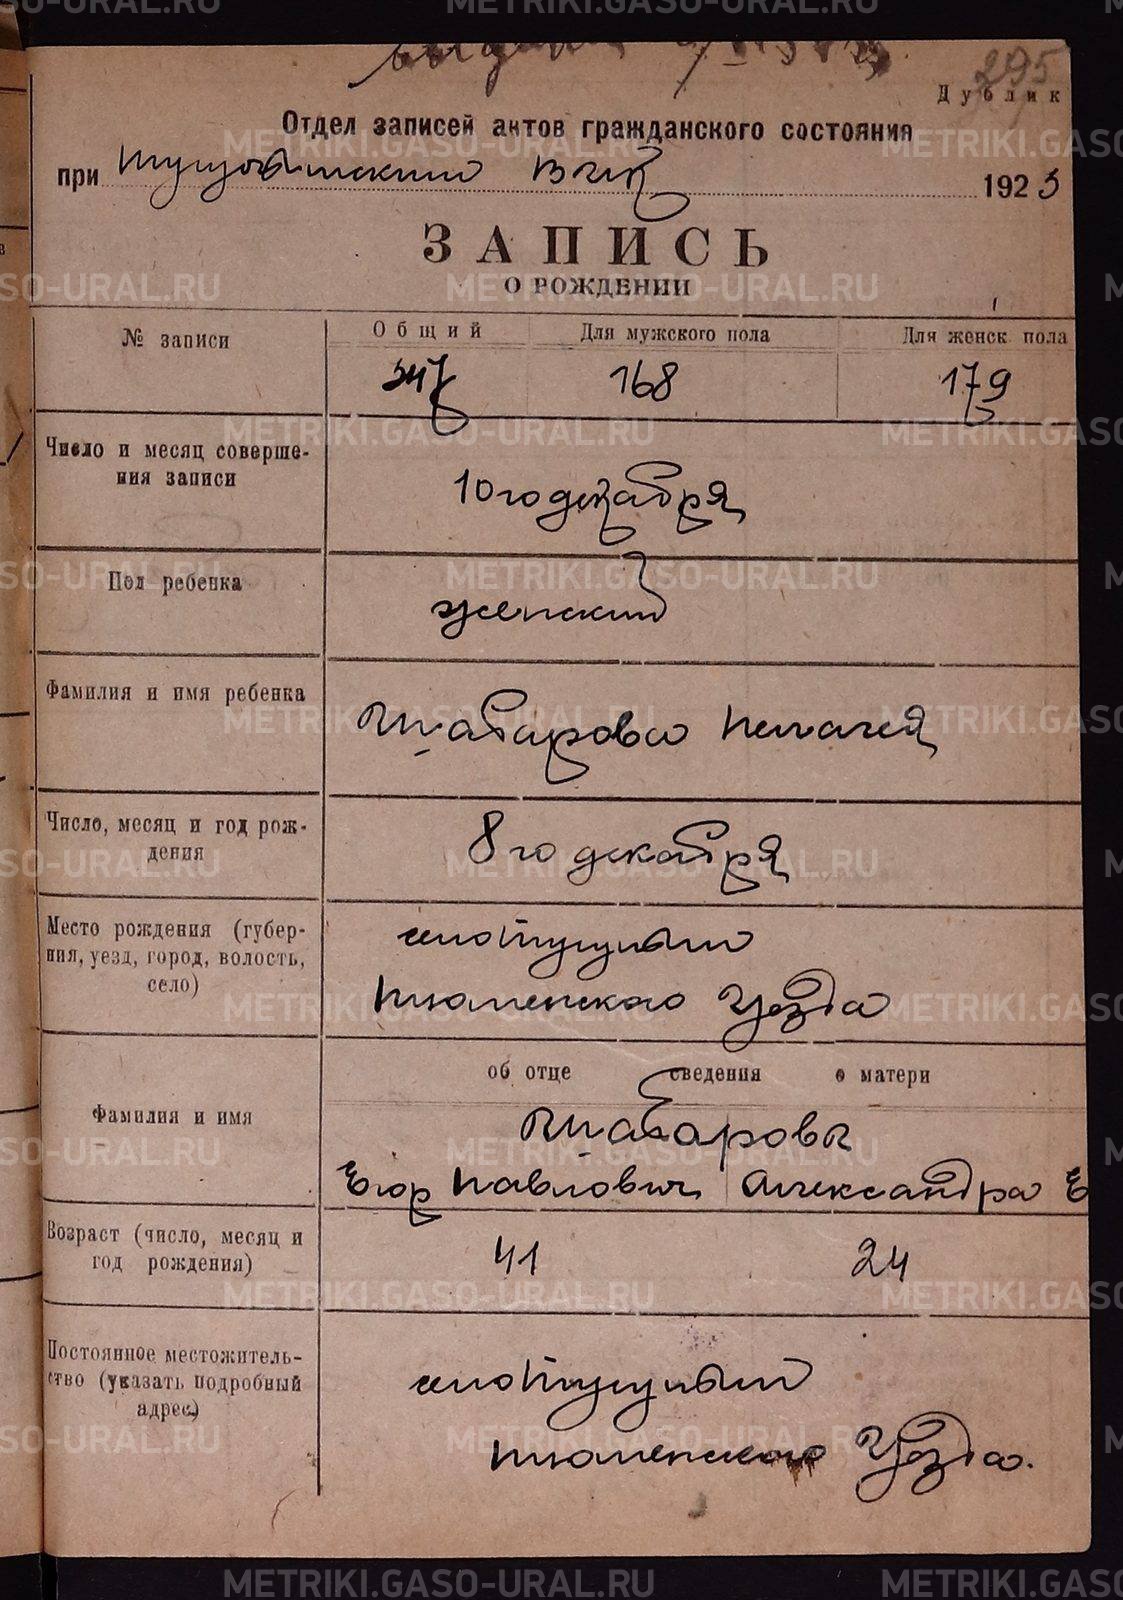 295
Дублик
Отдел записей актов гражданского состояния
при Тугулымский Вик 1923
ЗАПИСЬ
О РОЖДЕНИИ
№ записи
Общий Для мужского пола Для женск. пола
347 168 179
Число и месяц соверше-
ния записи
10го декабря
Пол ребенка
женский
Фамилия и имя ребенка
Шабарова Пелагея
Число, месяц и год рож-
дения
8го декабря
Место рождения (губер-
ния, уезд, город, волость,
село)
село Тугулым
Тюменского Уезда
об отце сведения о матери
Фамилия и имя
Шабаровы
Егор Павлович Александра Е
Возраст (число, месяц и
год рождения)
41 24
Постоянное местожитель-
ство (указать подробный
адрес)
село Тугулым
Тюменского Уезда.
METRIKI.GASO-URAL.RU